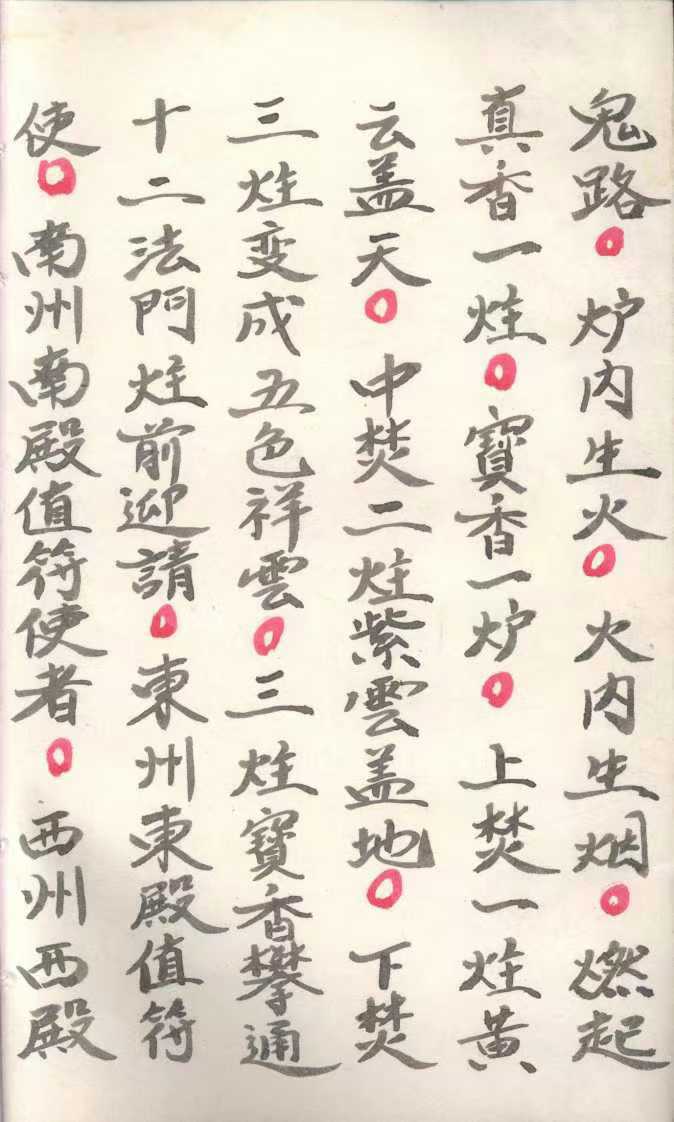 鬼路。炉内生火。火内生烟。燃起
真香一炷。寶香一炉。上焚一炷黄
云盖天。中焚二炷紫雲盖地。下焚
三炷变成五色祥雲。三炷寶香攀通
十二法門炷前迎請。東州東殿值符
使。南州南殿值符使者。西州西殿